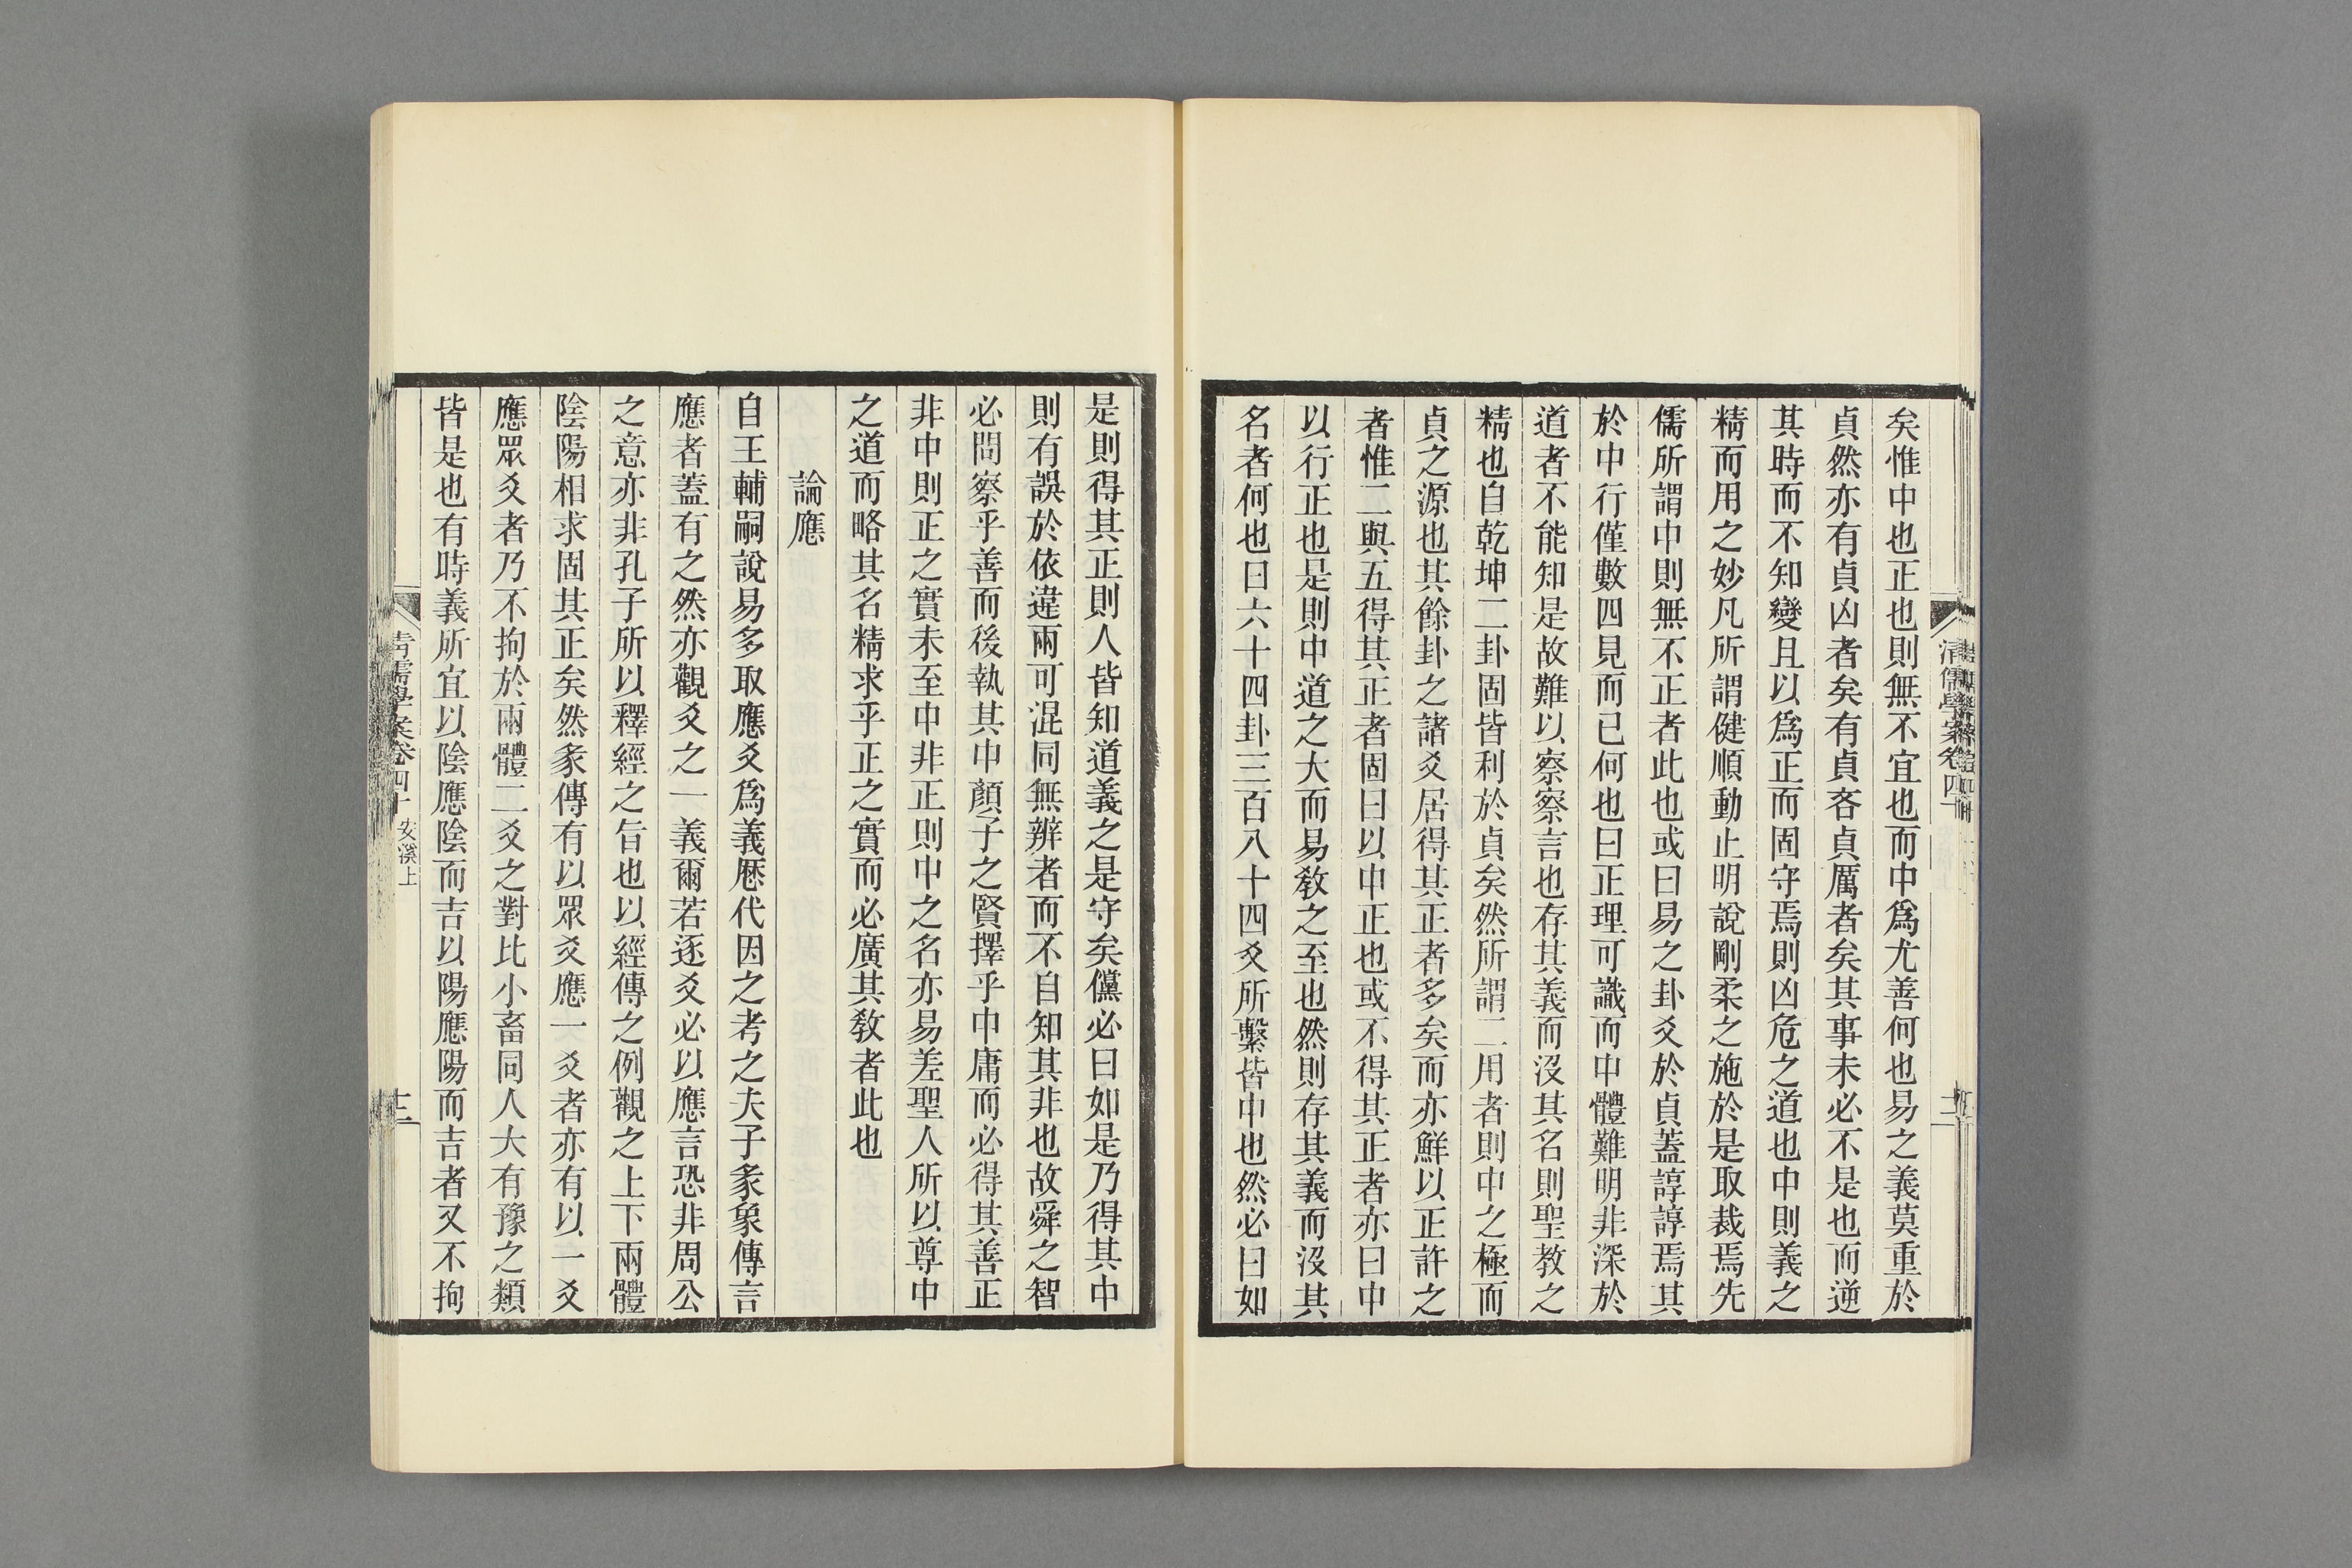 矣惟中也正也則無不宜也而中爲尤善何也易之義莫重於
貞然亦有貞凶者矣有貞吝貞厲者矣其事未必不是也而逆
其時而不知變且以爲正而固守焉則凶危之道也中則義之
精而用之妙凡所謂健順動止明說剛柔之施於是取裁焉先
儒所謂中則無不正者此也或曰易之卦爻於貞蓋諄諄焉其
於中行僅數四見而已何也曰正理可識而中體難明非深於
道者不能知是故難以察察言也存其義而沒其名則聖教之
精也自乾坤二卦固皆利於貞矣然所謂二用者則中之極而
貞之源也其餘卦之諸爻居得其正者多矣而亦鮮以正許之
者惟二與五得其正者固曰以中正也或不得其正者亦曰中
以行正也是則中道之大而易教之至也然則存其義而沒其
名者何也曰六十四卦三百八十四爻所繫皆中也然必曰如
是則得其正則人皆知道義之是守矣儻必曰如是乃得其中
則有誤於依違兩可混同無辨者而不自知其非也故舜之智
必問察乎善而後執其中顏子之賢擇乎中庸而必得其善正
非中則正之實未至中非正則中之名亦易差聖人所以尊中
之道而略其名精求乎正之實而必廣其教者此也
論應
自王輔嗣說易多取應爻爲義歷代因之考之夫子彖象傳言
應者蓋有之然亦觀爻之一義爾若逐爻必以應言恐非周公
之意亦非孔子所以釋經之旨也以經傳之例觀之上下兩體
陰陽相求固其正矣然彖傳有以眾爻應一爻者亦有以一爻
應眾爻者乃不拘於兩體二爻之對比小畜同人大有豫之類
皆是也有時義所宜以陰應陰而吉以陽應陽而吉者又不拘
清儒學案卷四十 安溪上